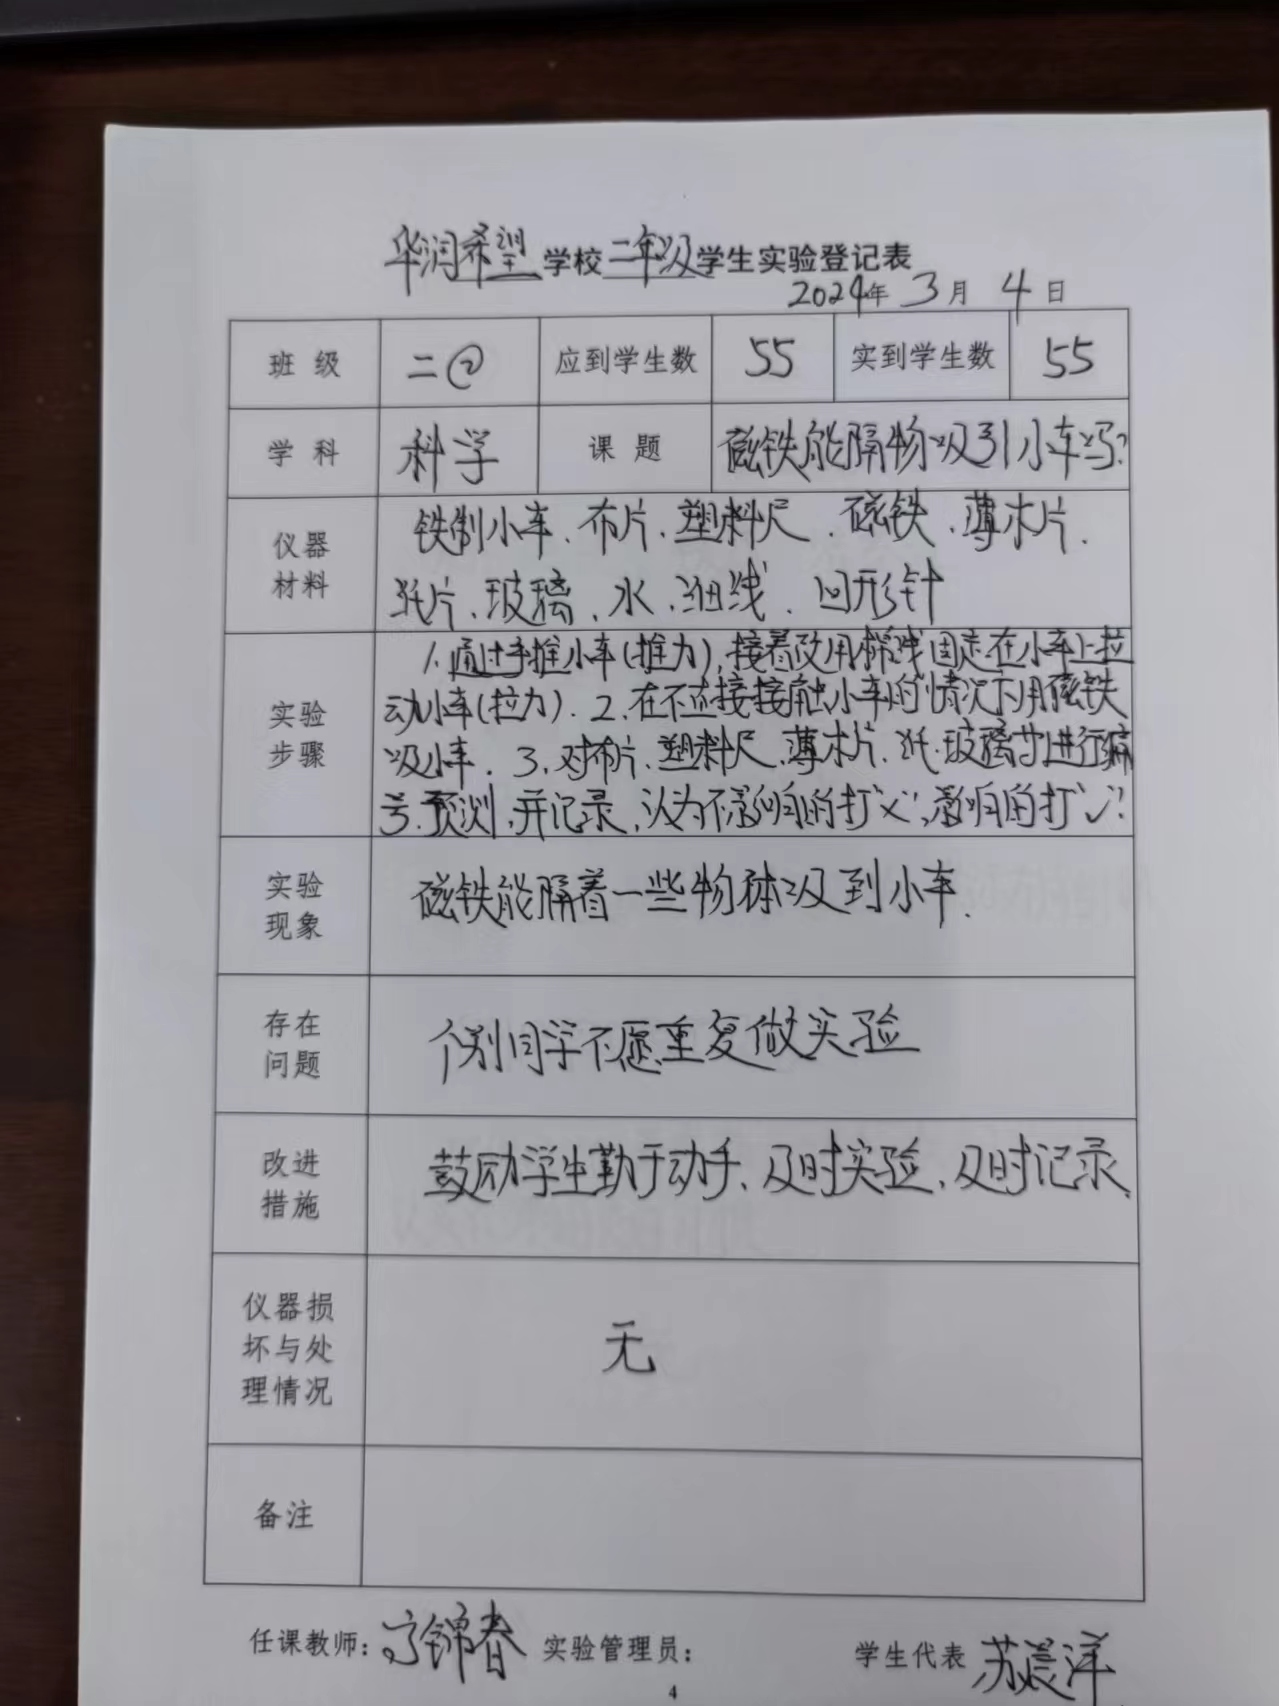 华润希望学校二年级学生实验登记表
2024年 3月 4日
班 级 二② 应到学生数 55 实到学生数 55
学 科 科学 课 题 磁铁能隔物吸引小车吗?
仪器
材料
铁制小车、布片、塑料尺、磁铁、薄木片、
纸片、玻璃、水、细线、回形针
实验
步骤
1.通过手推小车(推力),接着改用棉线固定在小车上拉
动小车(拉力). 2.在不直接接触小车的情况下用磁铁
吸小车. 3.对布片、塑料尺、薄木片、纸、玻璃艹进行编
号.预测,并记录,认为不影响的打"×",影响的打"√".
实验
现象
磁铁能隔着一些物体吸到小车.
存在
问题
个别同学不愿重复做实验
改进
措施
鼓励学生勤于动手、及时实验、及时记录.
仪器损
坏与处
理情况
无
备注
任课教师: 锦春 实验管理员: 学生代表 苏晨洋
4